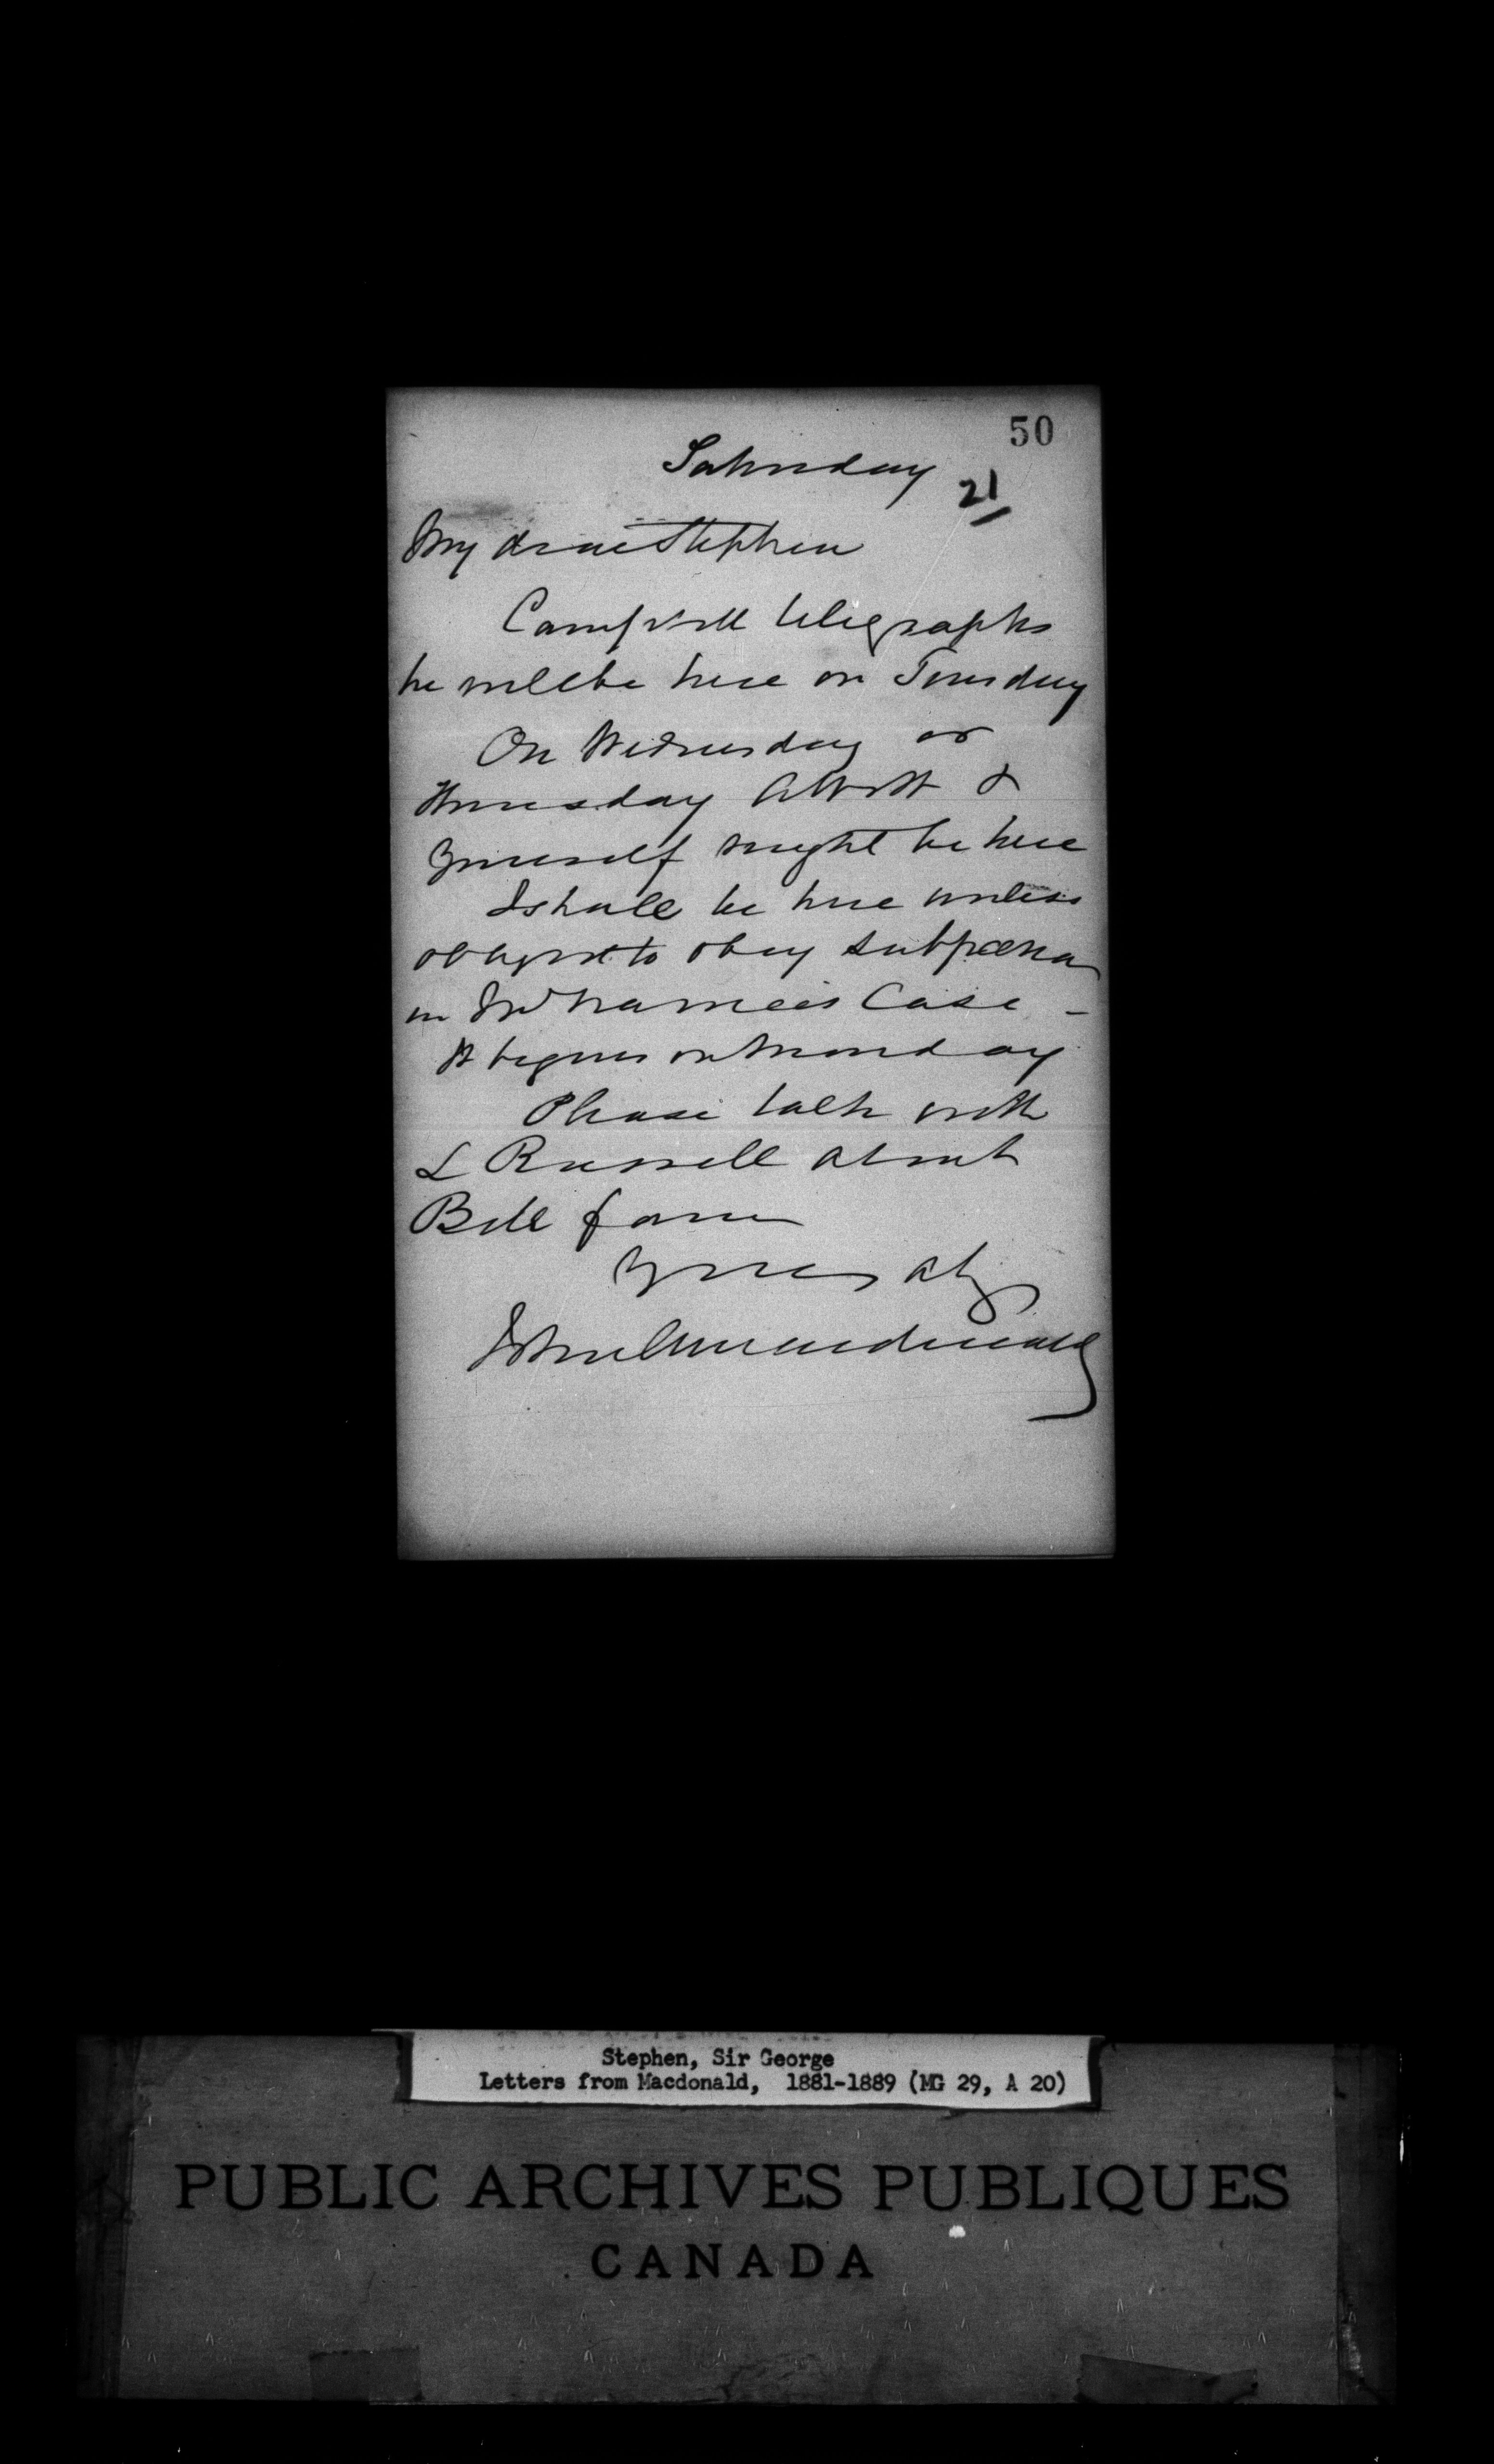 50
Saturday
21
My dear Stephen
Campbell telegraphs
he will be here on Tuesday
On Wednesday or
Thursday Abbott &
Yourself might be here
I shall be here unless
obliged to obey subpœna
in McNamee's Case -
It begins on Monday
Please talk with
L Russell about
Bell farm
Yours aly
John A Macdonald
Stephen, Sir George
Letters from Macdonald, 1881-1889 (MG 29, A 20)
PUBLIC ARCHIVES PUBLIQUES
CANADA